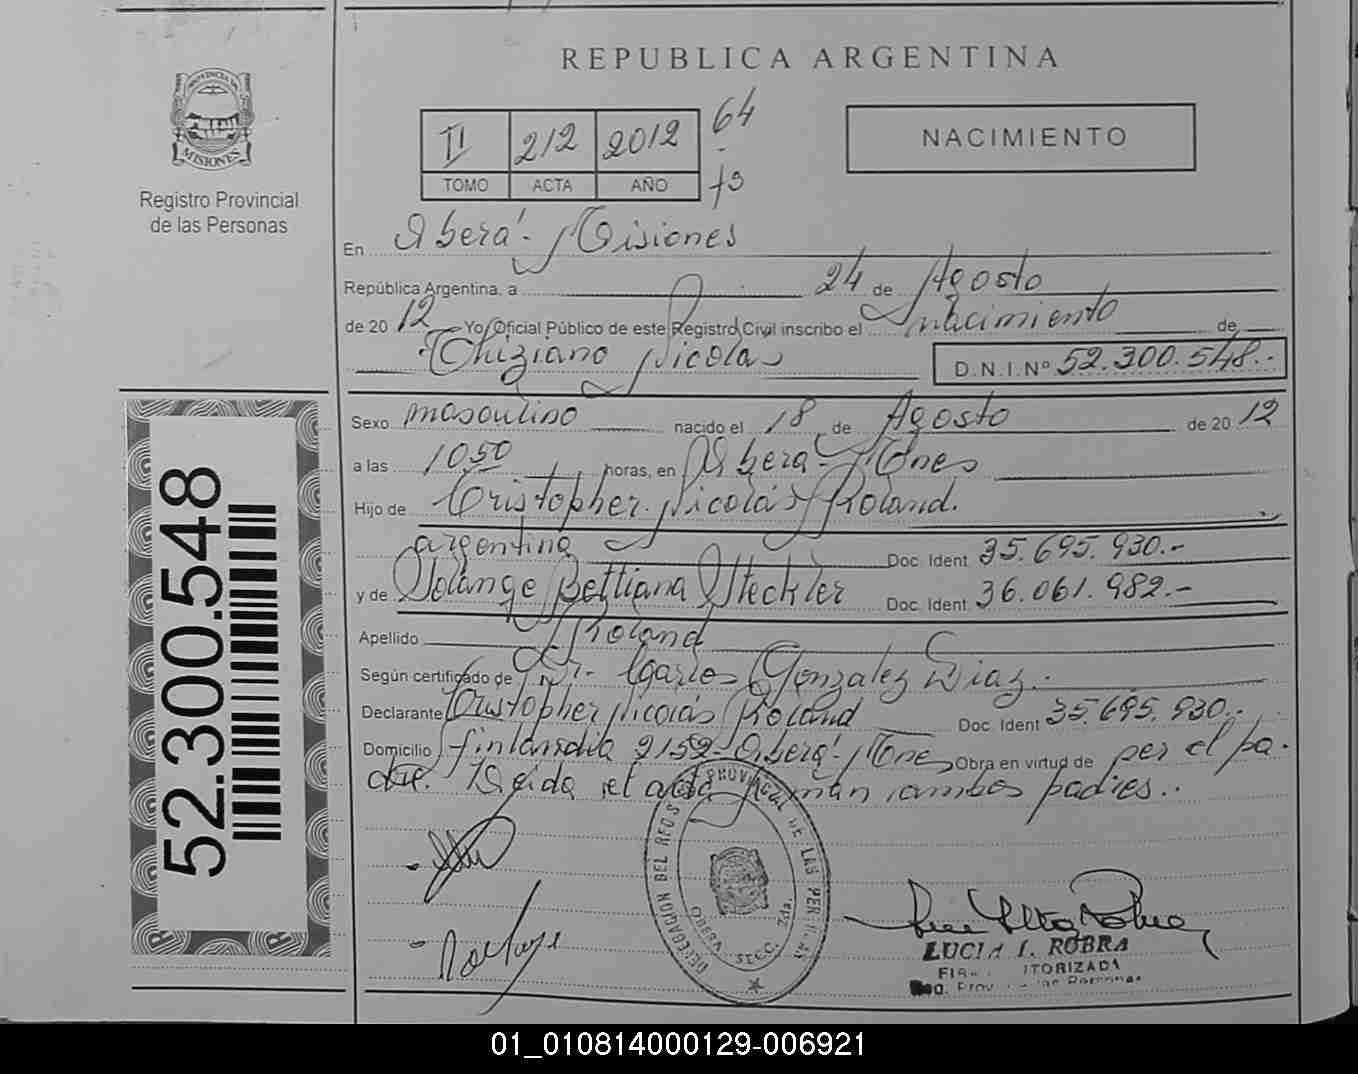 REPUBLICA ARGENTINA
PROVINCIA DE
MISIONES
Registro Provincial
de las Personas
II 212 2012 64
TOMO ACTA AÑO
NACIMIENTO
En Oberá - Misiones
República Argentina, a 24 de Agosto
de 2012 Yo, Oficial Público de este Registro Civil inscribo el nacimiento de
Thiziano Nicolás D.N.I.Nº 52.300.548.-
Sexo masculino nacido el 18 de Agosto de 2012
a las 10.50 horas, en Oberá - Mnes
Hijo de Cristopher Nicolás Roland.
argentina Doc. Ident 35.695.930.-
y de Solange Bettiana Steckler Doc. Ident. 36.061.982.-
Apellido Roland
Según certificado de Dr. Carlos Gonzalez Diaz.-
Declarante Cristopher Nicolás Roland Doc. Ident 35.695.930.-
Domicilio Finlandia 2152 - Oberá - Mnes Obra en virtud de ser el pa-
dre. Leida el acta firman ambos padres.-
52.300.548
PROVINCIAL DE LAS PER
OBERA SECC. 2da.
LUCIA I. ROBRA
01_010814000129-006921